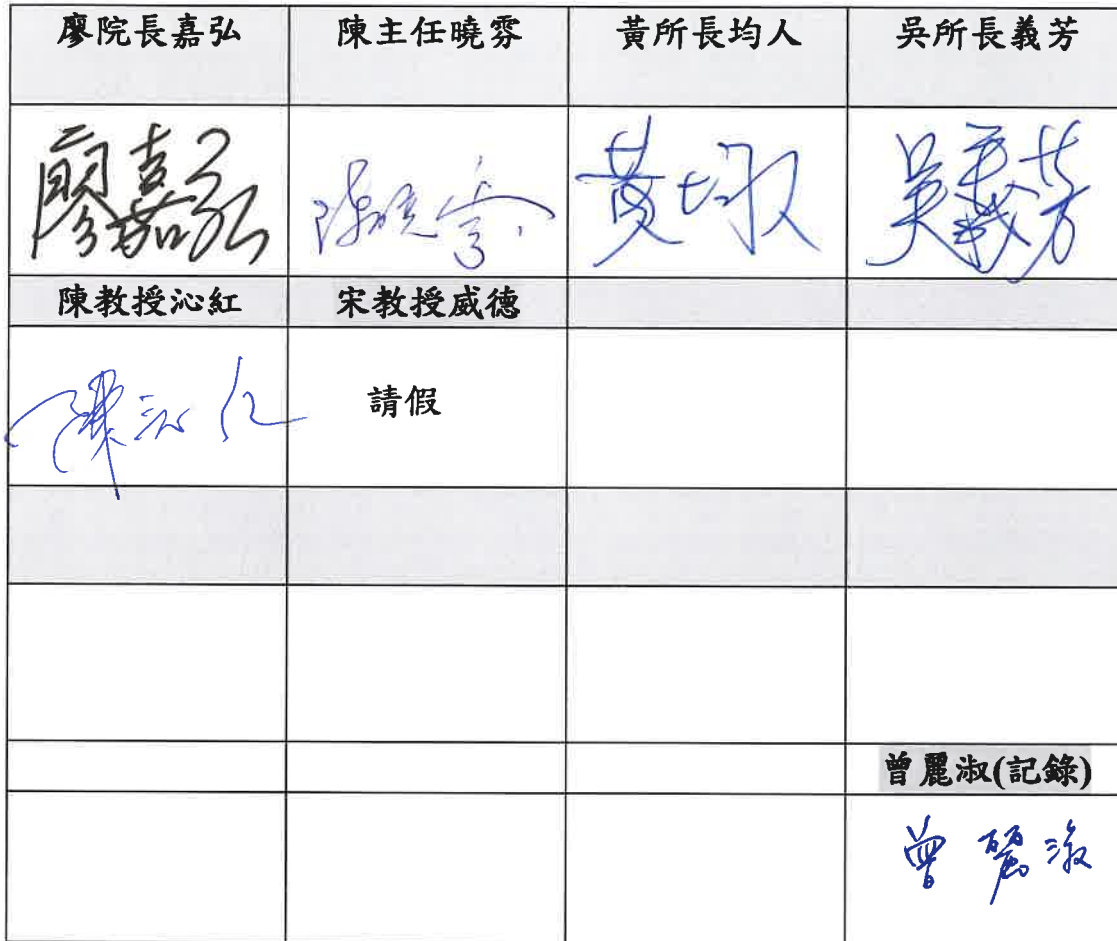 廖院長嘉弘 陳主任曉雰 黃所長均人 吳所長義芳
廖嘉弘 陳曉雰 黃均人 吳義芳
陳教授沁紅 宋教授威德
陳沁紅 請假
曾麗淑(記錄)
曾麗淑